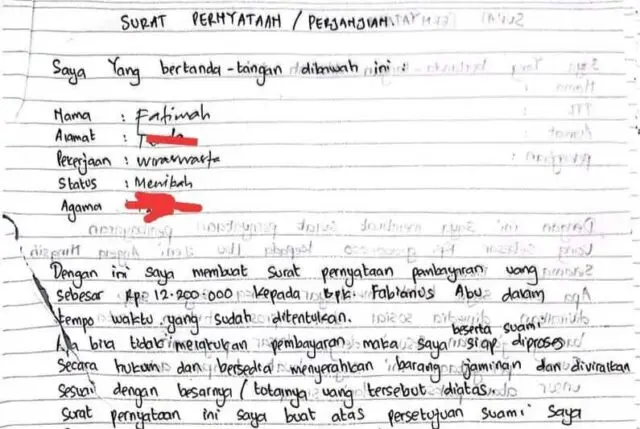 SURAT PERNYATAAN / PERJANJIAN
Saya Yang bertanda-tangan dibawah ini :
Nama : Fatimah
Alamat :
Pekerjaan : wiraswasta
Status : Menikah
Agama :
Dengan ini saya membuat surat pernyataan pembayaran uang
sebesar Rp. 12.200.000 kepada Bpk. Fabianus Abu dalam
tempo waktu yang sudah ditentukan.
beserta suami
Apa bila tidak melakukan pembayaran maka saya siap diproses
Secara hukum dan bersedia menyerahkan barang jaminan dan diviralkan
Sesuai dengan besarnya / totalnya uang tersebut diatas.
Surat pernyataan ini saya buat atas persetujuan suami saya